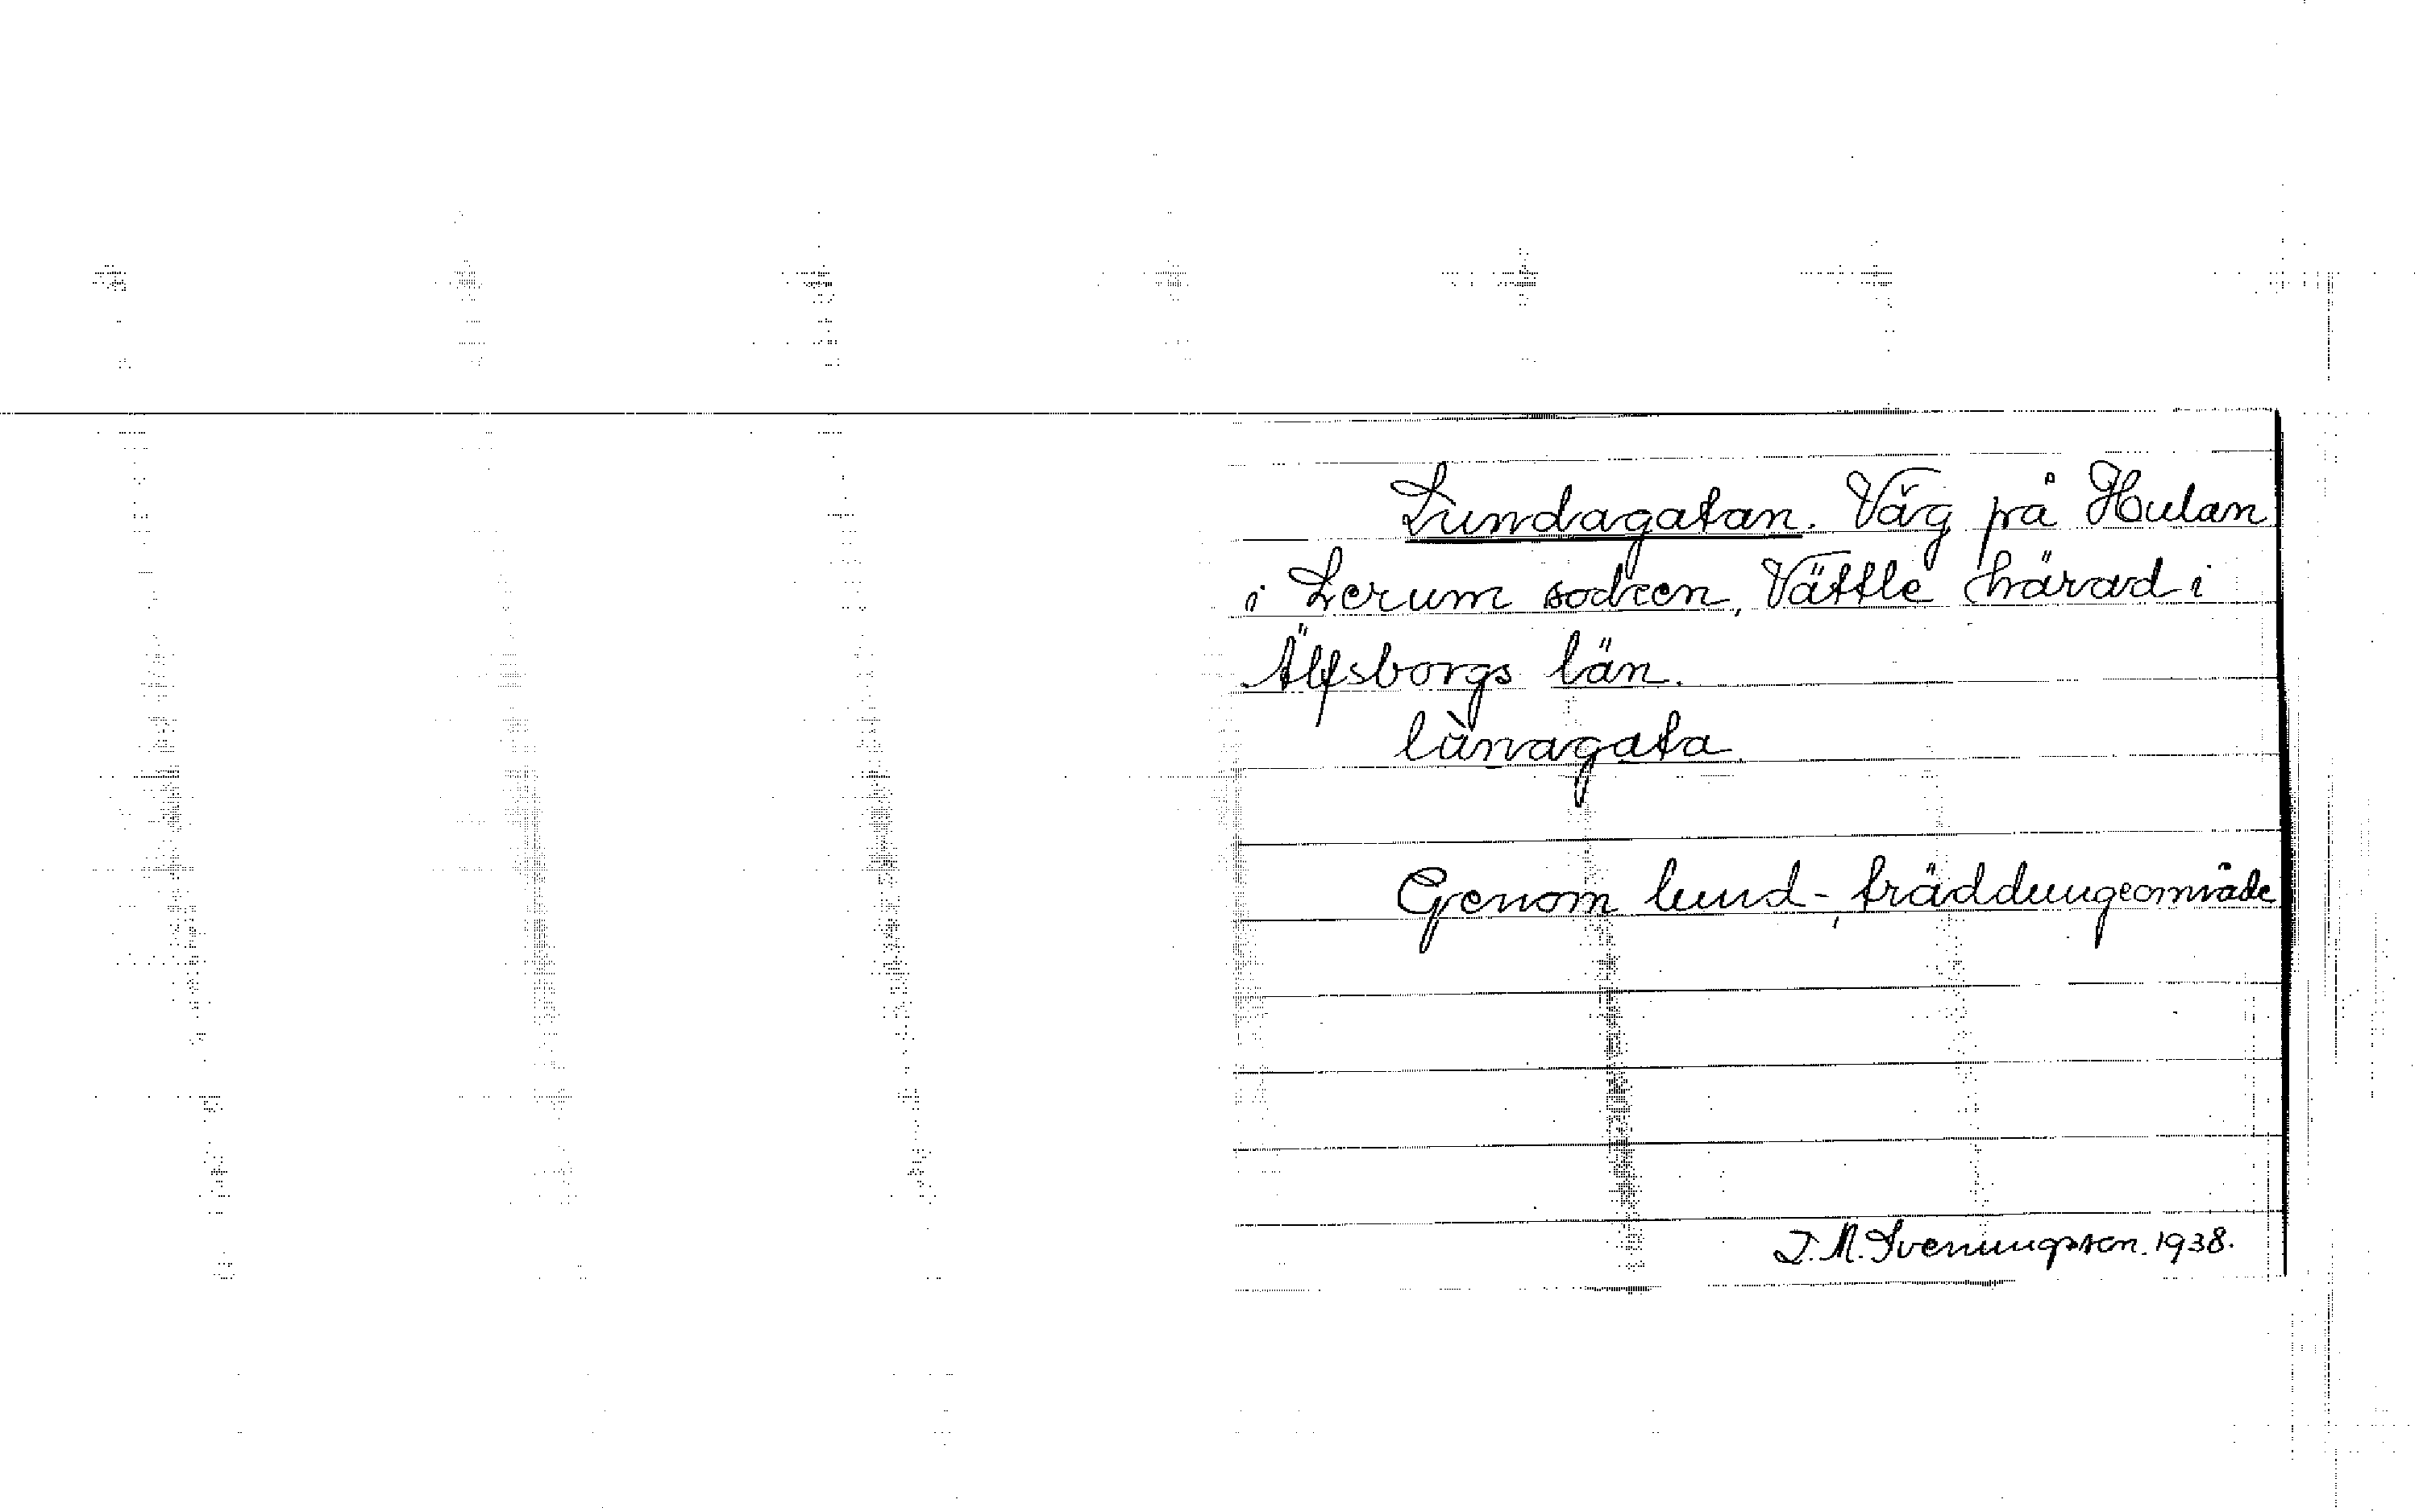 Lundagatan. Väg på Hulan
i Lerum socken, Vättle härad i
Älfsborgs län.
lùnagata.
Genom lund-, träddungeområde
J. M. Sveningsson. 1938.